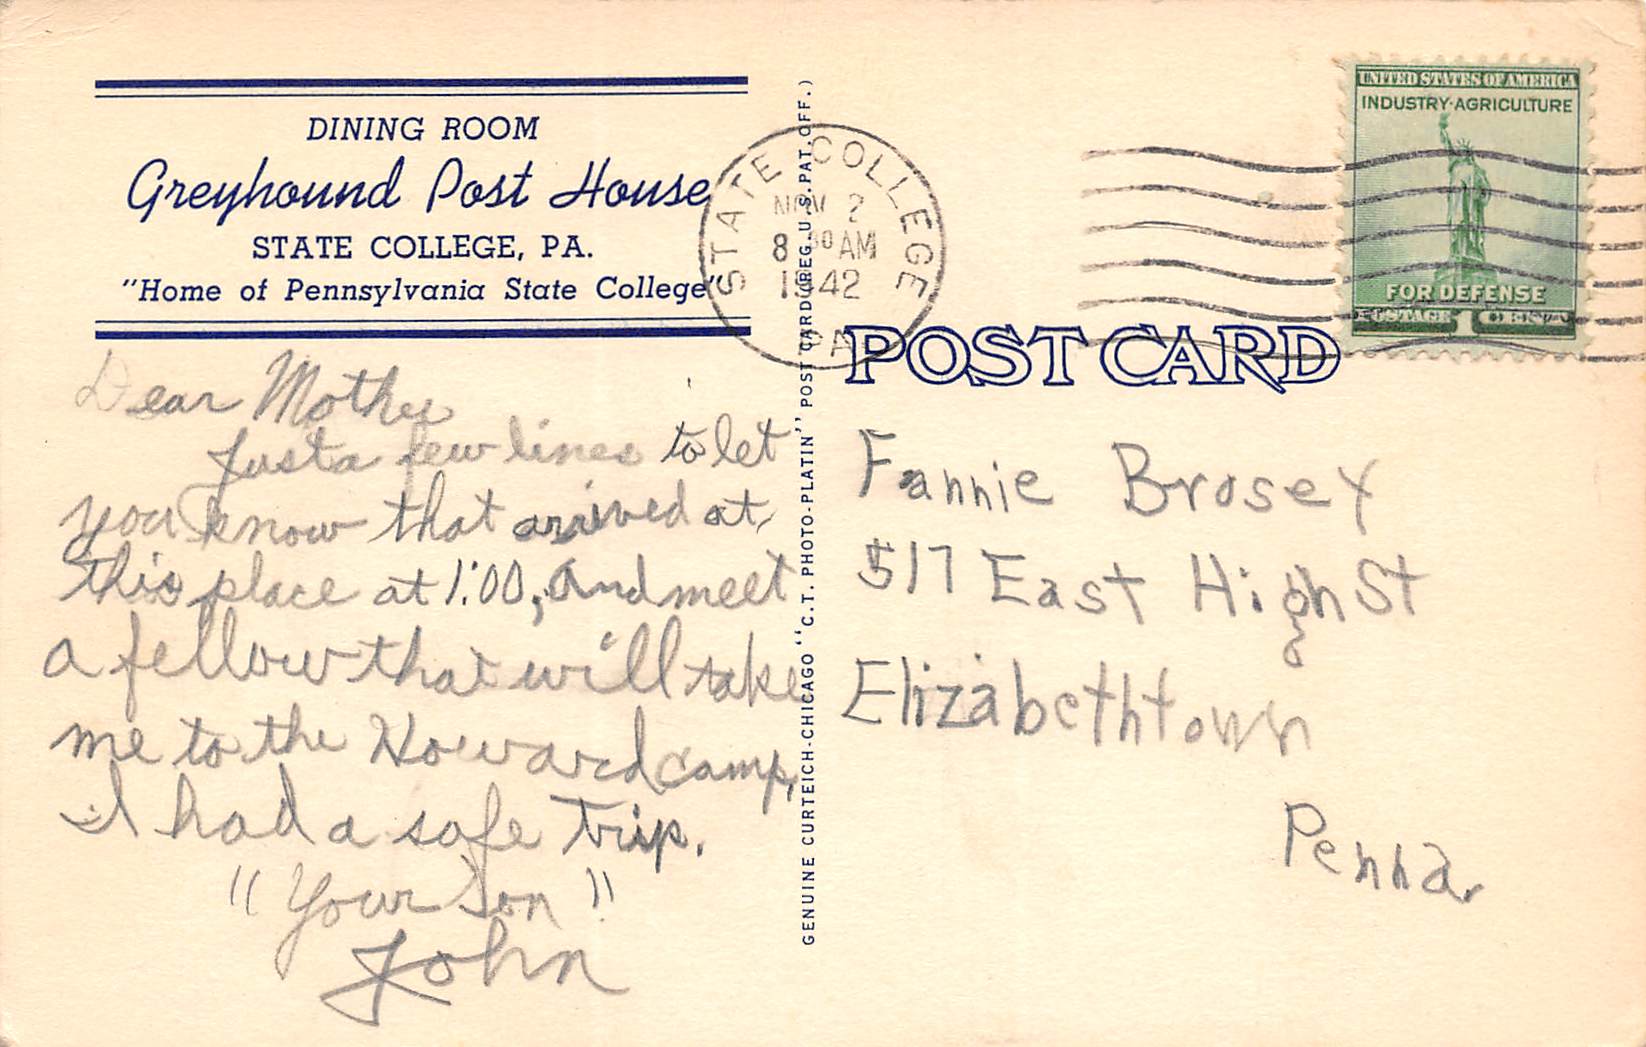 DINING ROOM
Greyhound Post House
STATE COLLEGE, PA.
"Home of Pennsylvania State College"
Dear Mother
Just a few lines to let
you know that arrived at
this place at 1:00, And meet
a fellow that will take
me to the Howard camp,
I had a safe trip.
"Your Son"
John
GENUINE CURTEICH-CHICAGO "C.T. PHOTO-PLATIN" POST CARD (REG. U.S. PAT. OFF.)
STATE COLLEGE
NOV 2
8 30 AM
1942
PA.
UNITED STATES OF AMERICA
INDUSTRY·AGRICULTURE
FOR DEFENSE
POSTAGE 1 CENT
POST CARD
Fannie Brosey
517 East High St
Elizabethtown
Penna.